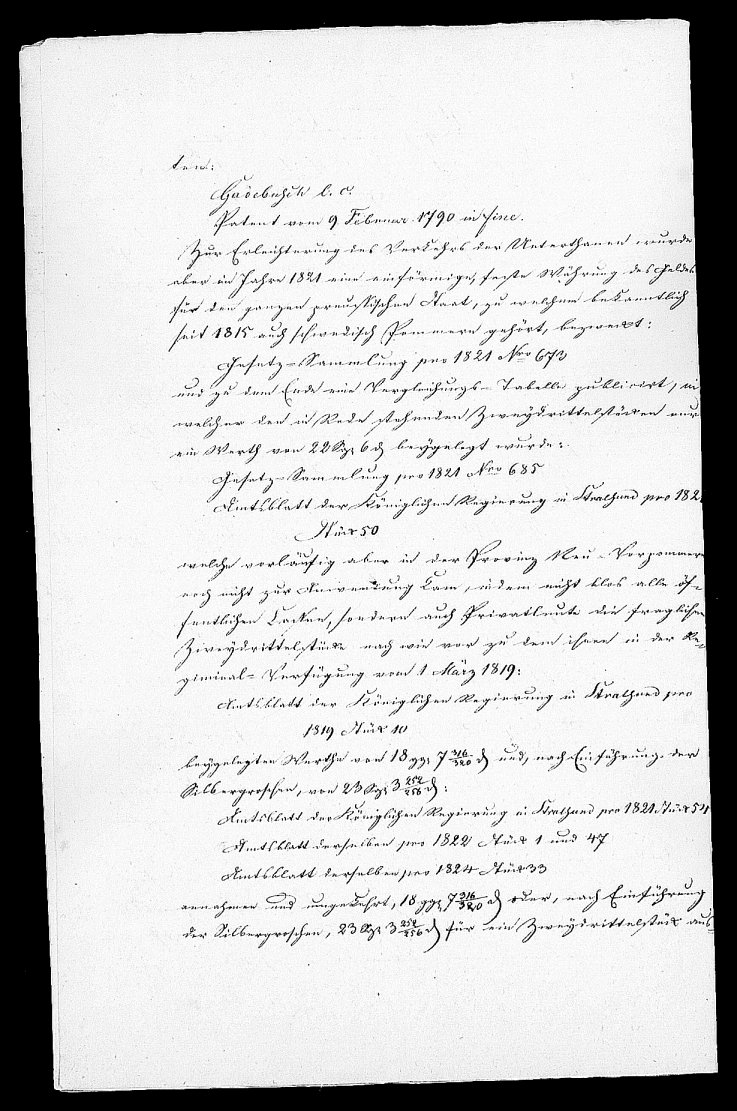 ten:
Gadebusch l. c.
Patent vom 9 Februar 1790 in fine.
Zur Erleichterung des Verkehrs der Unterthanen wurde
aber im Jahre 1821 eine einförmige, feste Währung des Geldes
für den ganzen preußischen Staat, zu welchem bekanntlich
seit 1815 auch schwedisch Pommern gehört, bezweckt:
Gesetz-Sammlung pro 1821 Nro 673
und zu dem Ende eine Vergleichungs-Tabelle publicirt, in
welcher den in Rede stehenden Zweydrittelstücken nur
ein Werth von 22 Sgr 6 d beygelegt wurde:
Gesetz-Sammlung pro 1821 Nro 685
Amtsblatt der Königlichen Regierung in Stralsund pro 182
Stück 50
welche vorläufig aber in der Provinz Neu-Vorpommern
noch nicht zur Anwendung kam, indem nicht blos alle öf-
fentlichen Cassen, sondern auch Privatleute die fraglichen
Zweydrittelstücke nach wie vor zu dem ihnen in der Re-
giminal-Verfügung vom 1 März 1819:
Amtsblatt der Königlichen Regierung in Stralsund pro
1819 Stück 10
beygelegten Werthe von 18 ggr 7 316/320 d und, nach Einführung der
Silbergroschen, von 23 Sgr 3 252/256 d:
Amtsblatt der Königlichen Regierung in Stralsund pro 1821 Stück 54
Amtsblatt derselben pro 1822 Stück 1 und 47
Amtsblatt derselben pro 1824 Stück 33
annahmen und umgekehrt, 18 ggr 7 316/320 d oder, nach Einführung
der Silbergroschen, 23 Sgr 3 252/256 d für ein Zweydrittelstück aus-